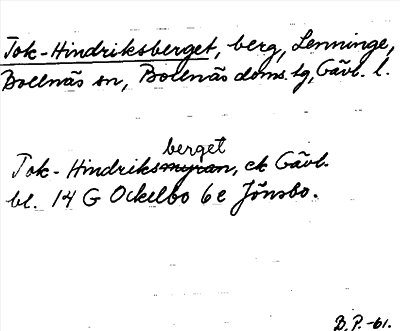 Tok-Hindriksberget, berg, Lenninge,
Bollnäs sn, Bollnäs doms. tg, Gävl. l.
berget
Tok-Hindriksmyran, ek Gävl.
bl. 14 G Ockelbo 6e Jönsbo.
B.P.-61.